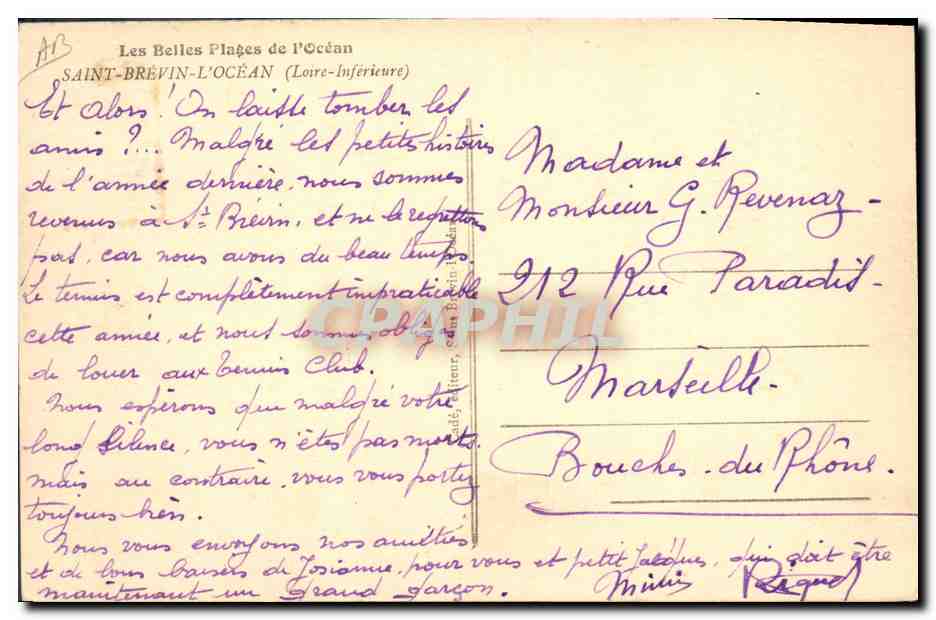 AB
Les Belles Plages de l'Océan
SAINT-BRÉVIN-L'OCÉAN (Loire-Inférieure)
Et alors ! On laisse tomber les
amis ?... Malgré les petites histoires
de l'année dernière, nous sommes
revenus à St Brévin, et ne le regrettons
pas, car nous avons du beau temps.
Le tennis est complètement impraticable
cette année, et nous sommes obligés
de louer aux Tennis Club.
Nous espérons que malgré votre
long silence, vous n'êtes pas morts
mais au contraire, vous vous portez
toujours bien.
Nous vous envoyons nos amitiés
et de bons baisers de Josianne, pour vous et petit Jacques, qui doit être
maintenant un grand garçon.
Madame et
Monsieur G. Revenaz -
212 Rue Paradis -
Marseille -
Bouches-du-Rhône.
éditeur, Saint-Brévin-l'Océan
CPAPHIL